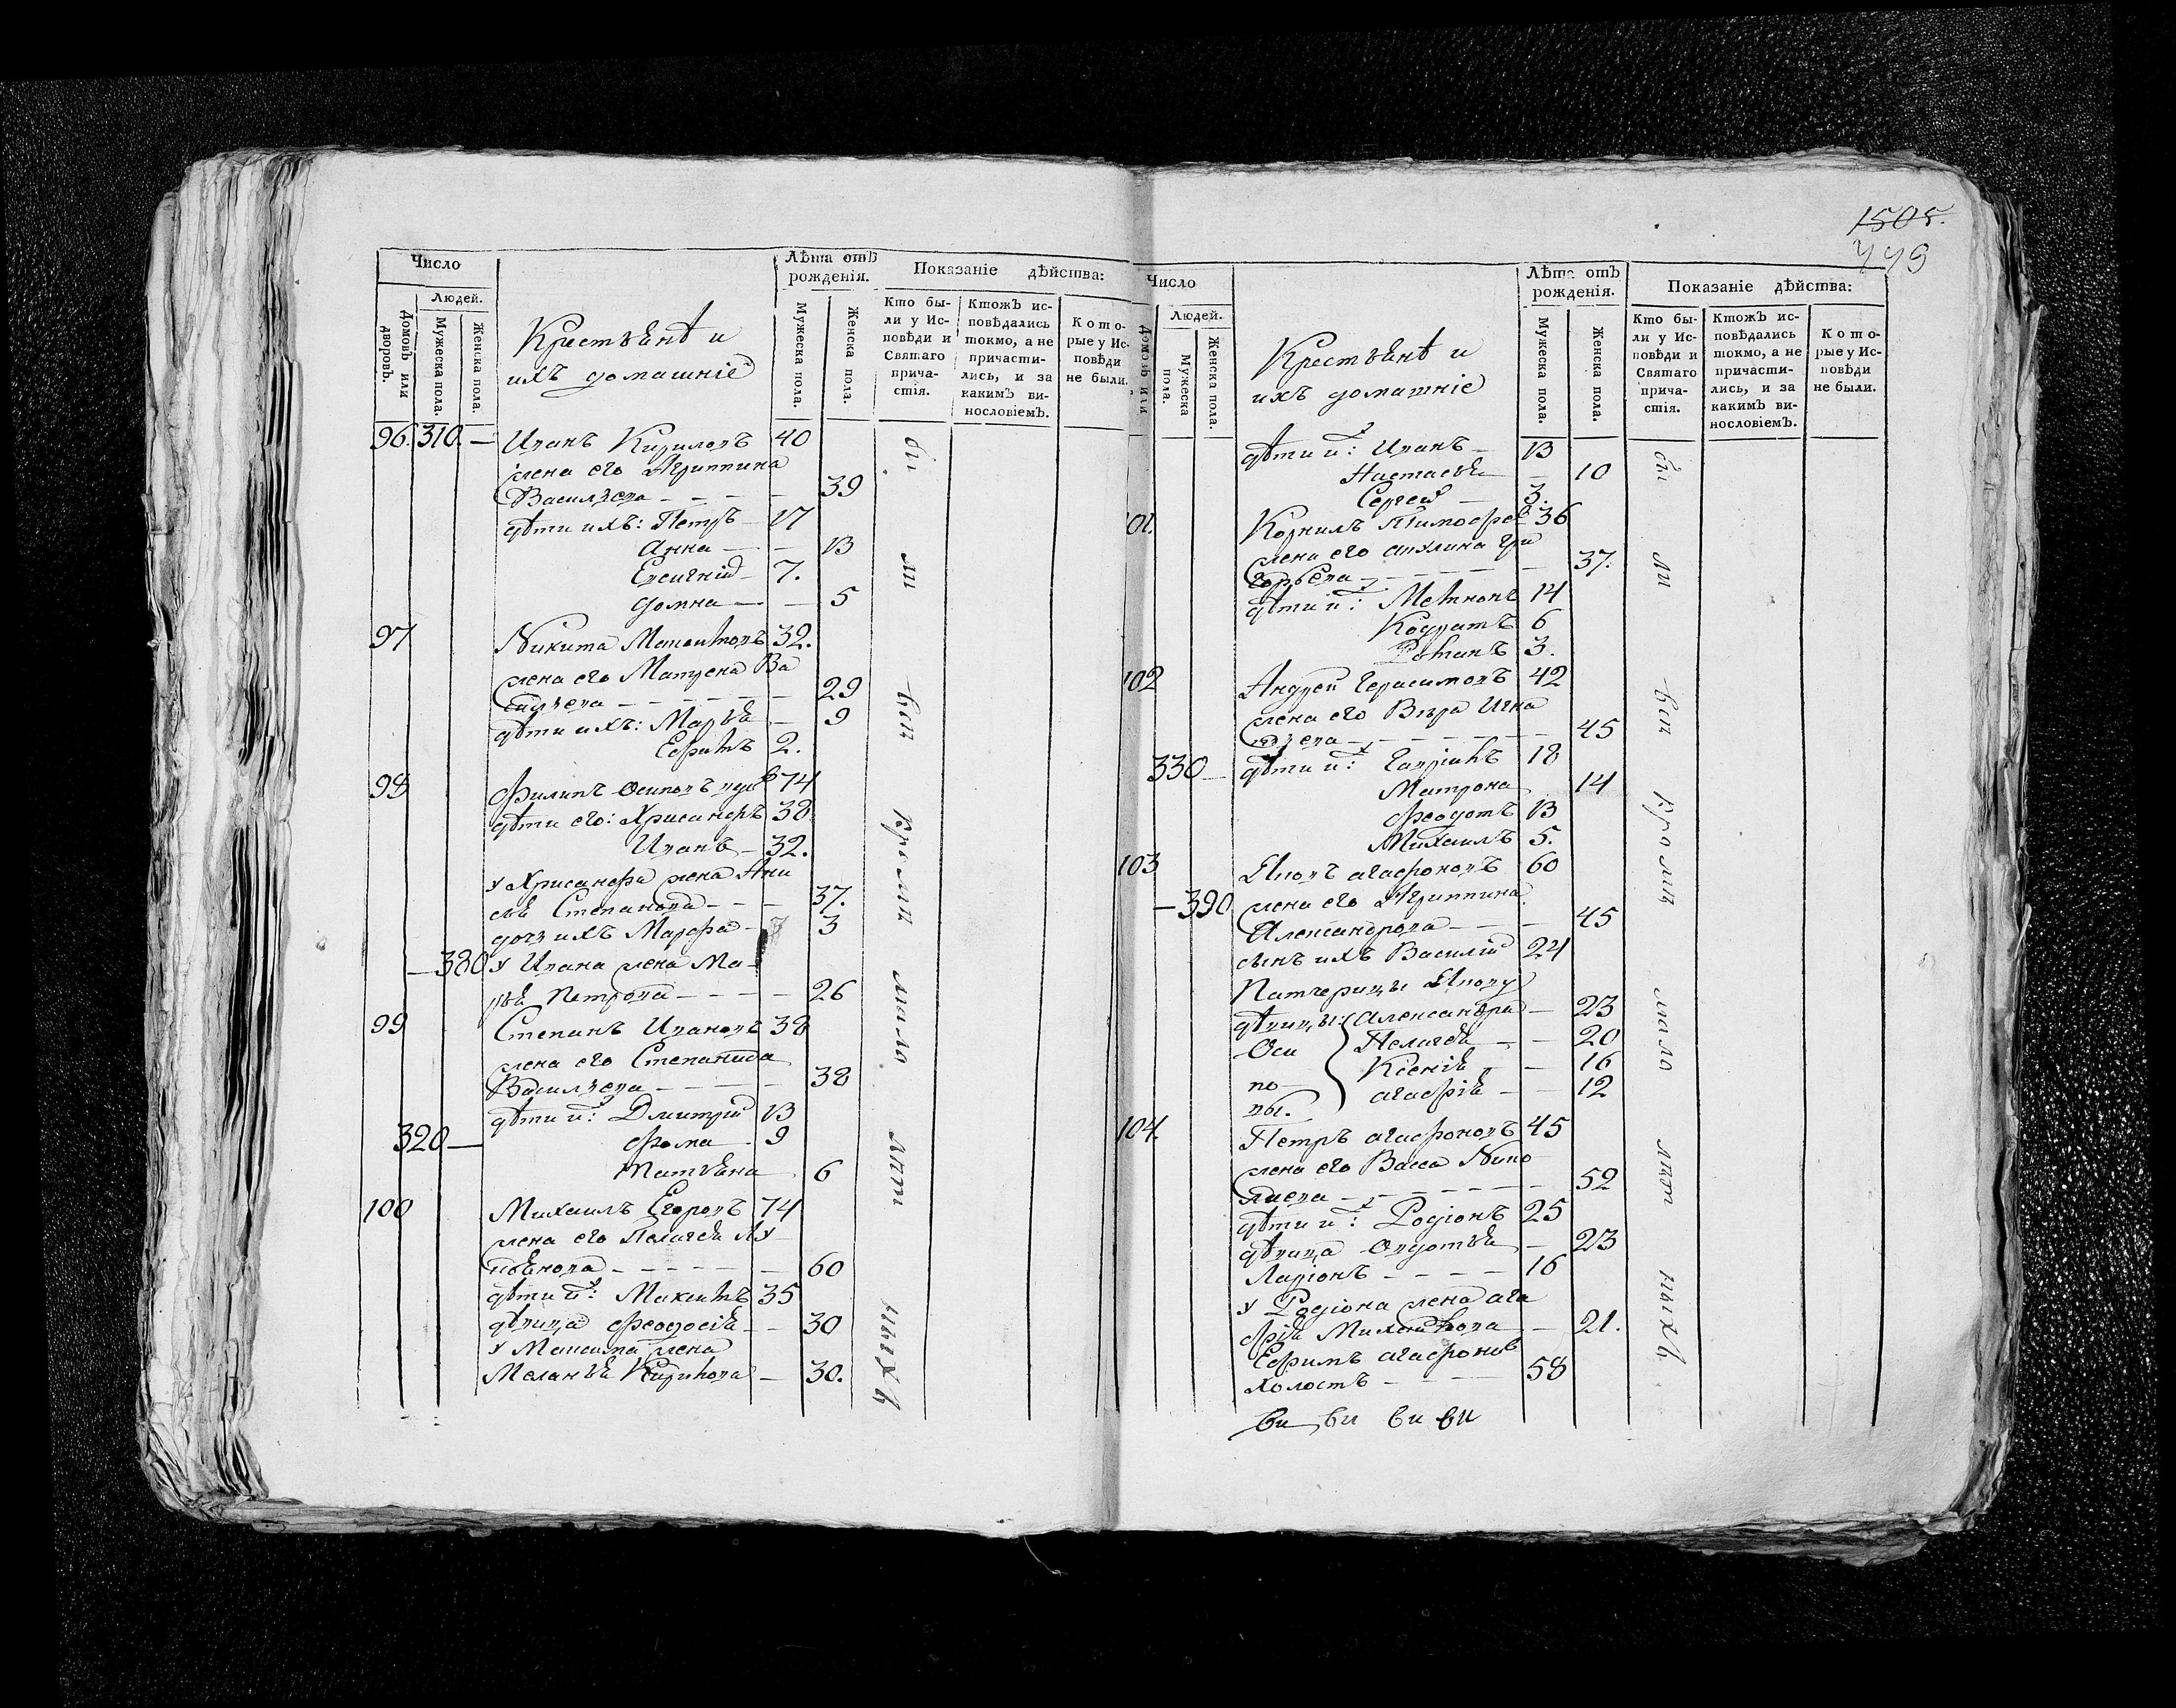 1505.
449
Число
Людей.
Домовъ или дворовъ.
Мужеска пола.
Женска пола.
Крестьянѣ и
ихъ домашніе
Лѣта отъ рожденія.
Мужеска пола.
Женска пола.
Показаніе дѣйства:
Кто бы-
ли у Ис-
повѣди и
Святаго
прича-
стія.
Ктожъ ис-
повѣдались
токмо, а не
причасти-
лись, и за
какимъ ви-
нословіемъ.
Кото-
рые у Ис-
повѣди
не были.
96. 310. — Иванъ Кириловъ 40
жена его Агриппина
Васильева — 39
дѣти ихъ: Петръ 17
Анна — 13
Евсигній 7.
Домна — 5
97 Никита Максимовъ 32.
жена его Матрена Ва
сильева — 29
дѣти ихъ: Марья — 9
Ефимъ 2.
98 Филипъ Осиповъ вдовъ 74
дѣти его: Хрисанфъ 38
Иванъ 32.
у Хрисанфа жена Ани
сья Степанова — 37.
дочь ихъ Марфа — 3
— 380 у Ивана жена Ма-
рья Петрова — 26
99 Степанъ Ивановъ 38
жена его Степанида
Васильева — 38
дѣти их: Дмитрій 13
320 — Фома 9
Матвѣна 6
100 Михаилъ Егоровъ 74
жена его Пелагея Лу
кьянова — 60
дѣти их: Максимъ 35
дѣвица Феодосія — 30
у Максима жена
Меланья Кирилова — 30.
бы
ли
всѣ
кромѣ
мало
лѣт
ныхъ
Число
Людей.
Домовъ или
Мужеска пола.
Женска пола.
Крестьянѣ и
ихъ домашніе
Лѣта отъ рожденія.
Мужеска пола.
Женска пола.
Показаніе дѣйства:
Кто бы-
ли у Ис-
повѣди и
Святаго
прича-
стія.
Ктожъ ис-
повѣдались
токмо, а не
причасти-
лись, и за
какимъ ви-
нословіемъ.
Кото-
рые у Ис-
повѣди
не были.
дѣти их: Иванъ 13
Настасья — 10
Сергей 3.
101. Корнилъ Тимофеев 36
жена его Акулина Гри
горьева — 37.
дѣти их: Мемнонъ 14
Кодратъ 6
Романъ 3.
102 Андрей Герасимовъ 42
жена его Вѣра Игна
тьева — 45
330 — дѣти их: Гавріилъ 18
Матрона 14
Феодотъ 13
Михаилъ 5.
103 Иовъ Агафоновъ 60
— 390 жена его Агриппина
Александрова — 45
сынъ ихъ Василій 24
Патчерицы Иову
дѣвицы: Александра — 23
Оси Пелагея — 20
по Ксенія — 16
вы. Агафія — 12
104. Петръ Агафоновъ 45
жена его Васса Нико
лаева — 52
дѣти их: Родіонъ 25
дѣвица Овдотья — 23
Ларіонъ — 16
у Родіона жена Ага
фія Михайлова — 21.
Ефимъ Агафонов
холостъ — 58
би би би би
бы
ли
всѣ
кромѣ
мало
лѣт
ныхъ